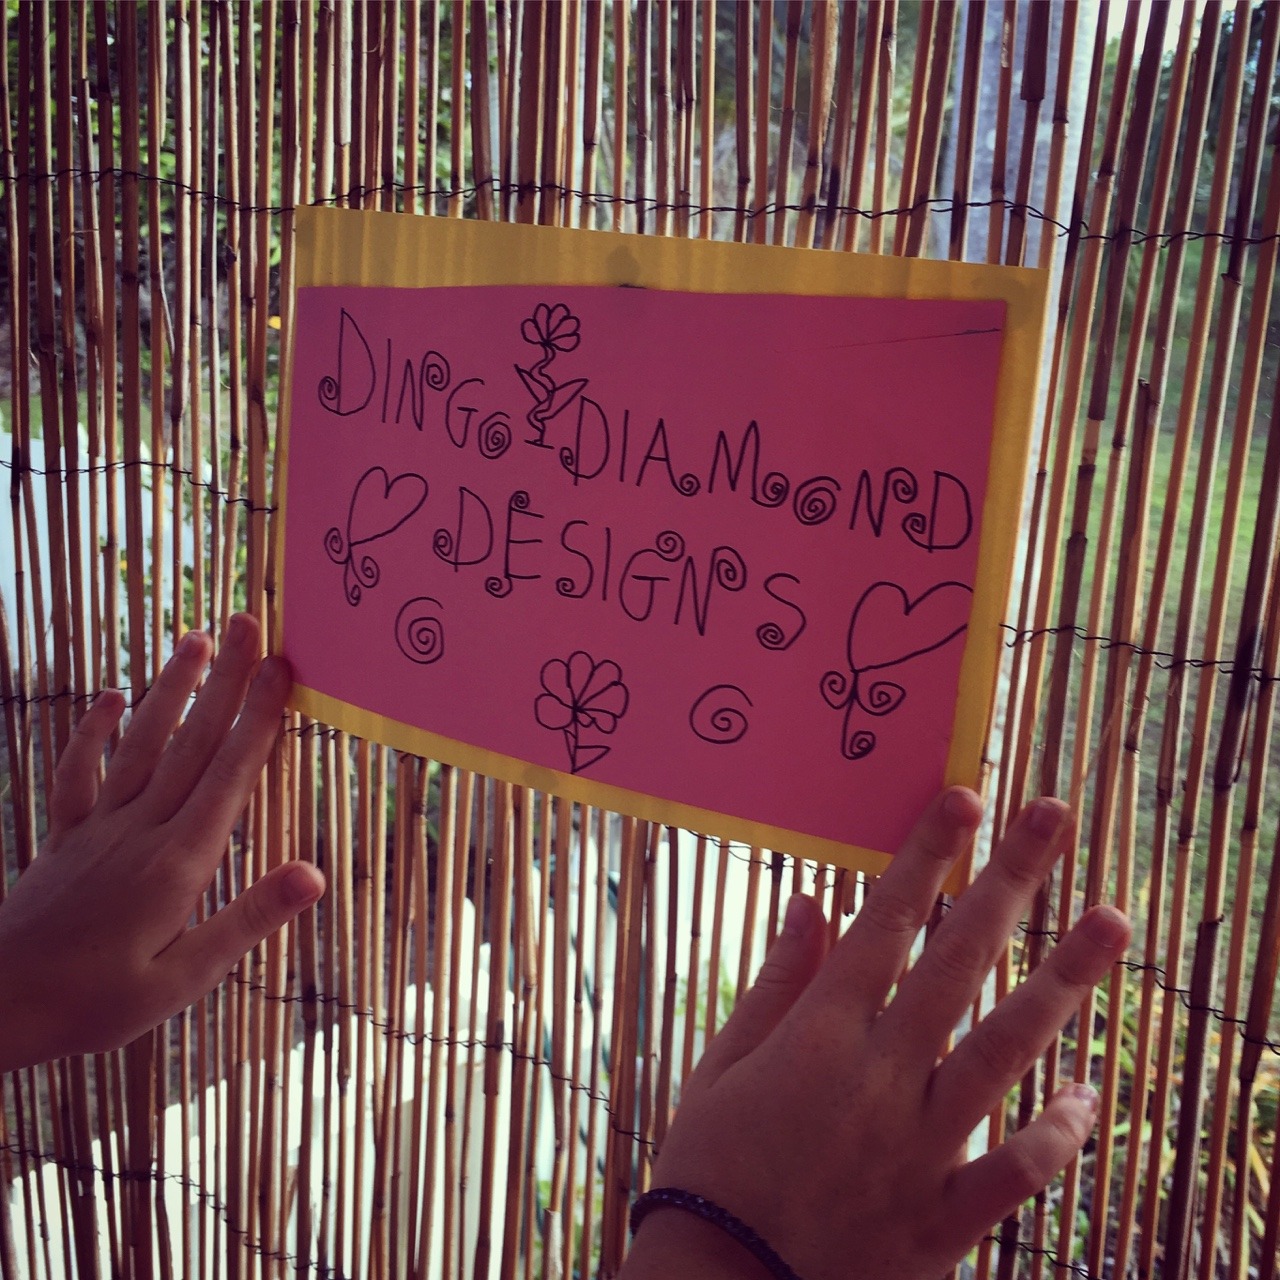 DINGO DIAMOND
DESIGNS